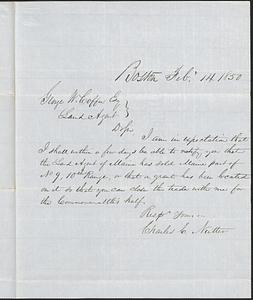 Boston Feb. 14 1850
George W. Coffin Esq
Land Agent
Dr Sir
I am in expectation that
I shall within a few days be able to notify you that
the Land Agent of Maine has sold Maine part of
No 9, 10th Range, or that a grant has been located
on it so that you can close the trade with me for
the Commonwealth's half.
Respy Yours
Charles E.